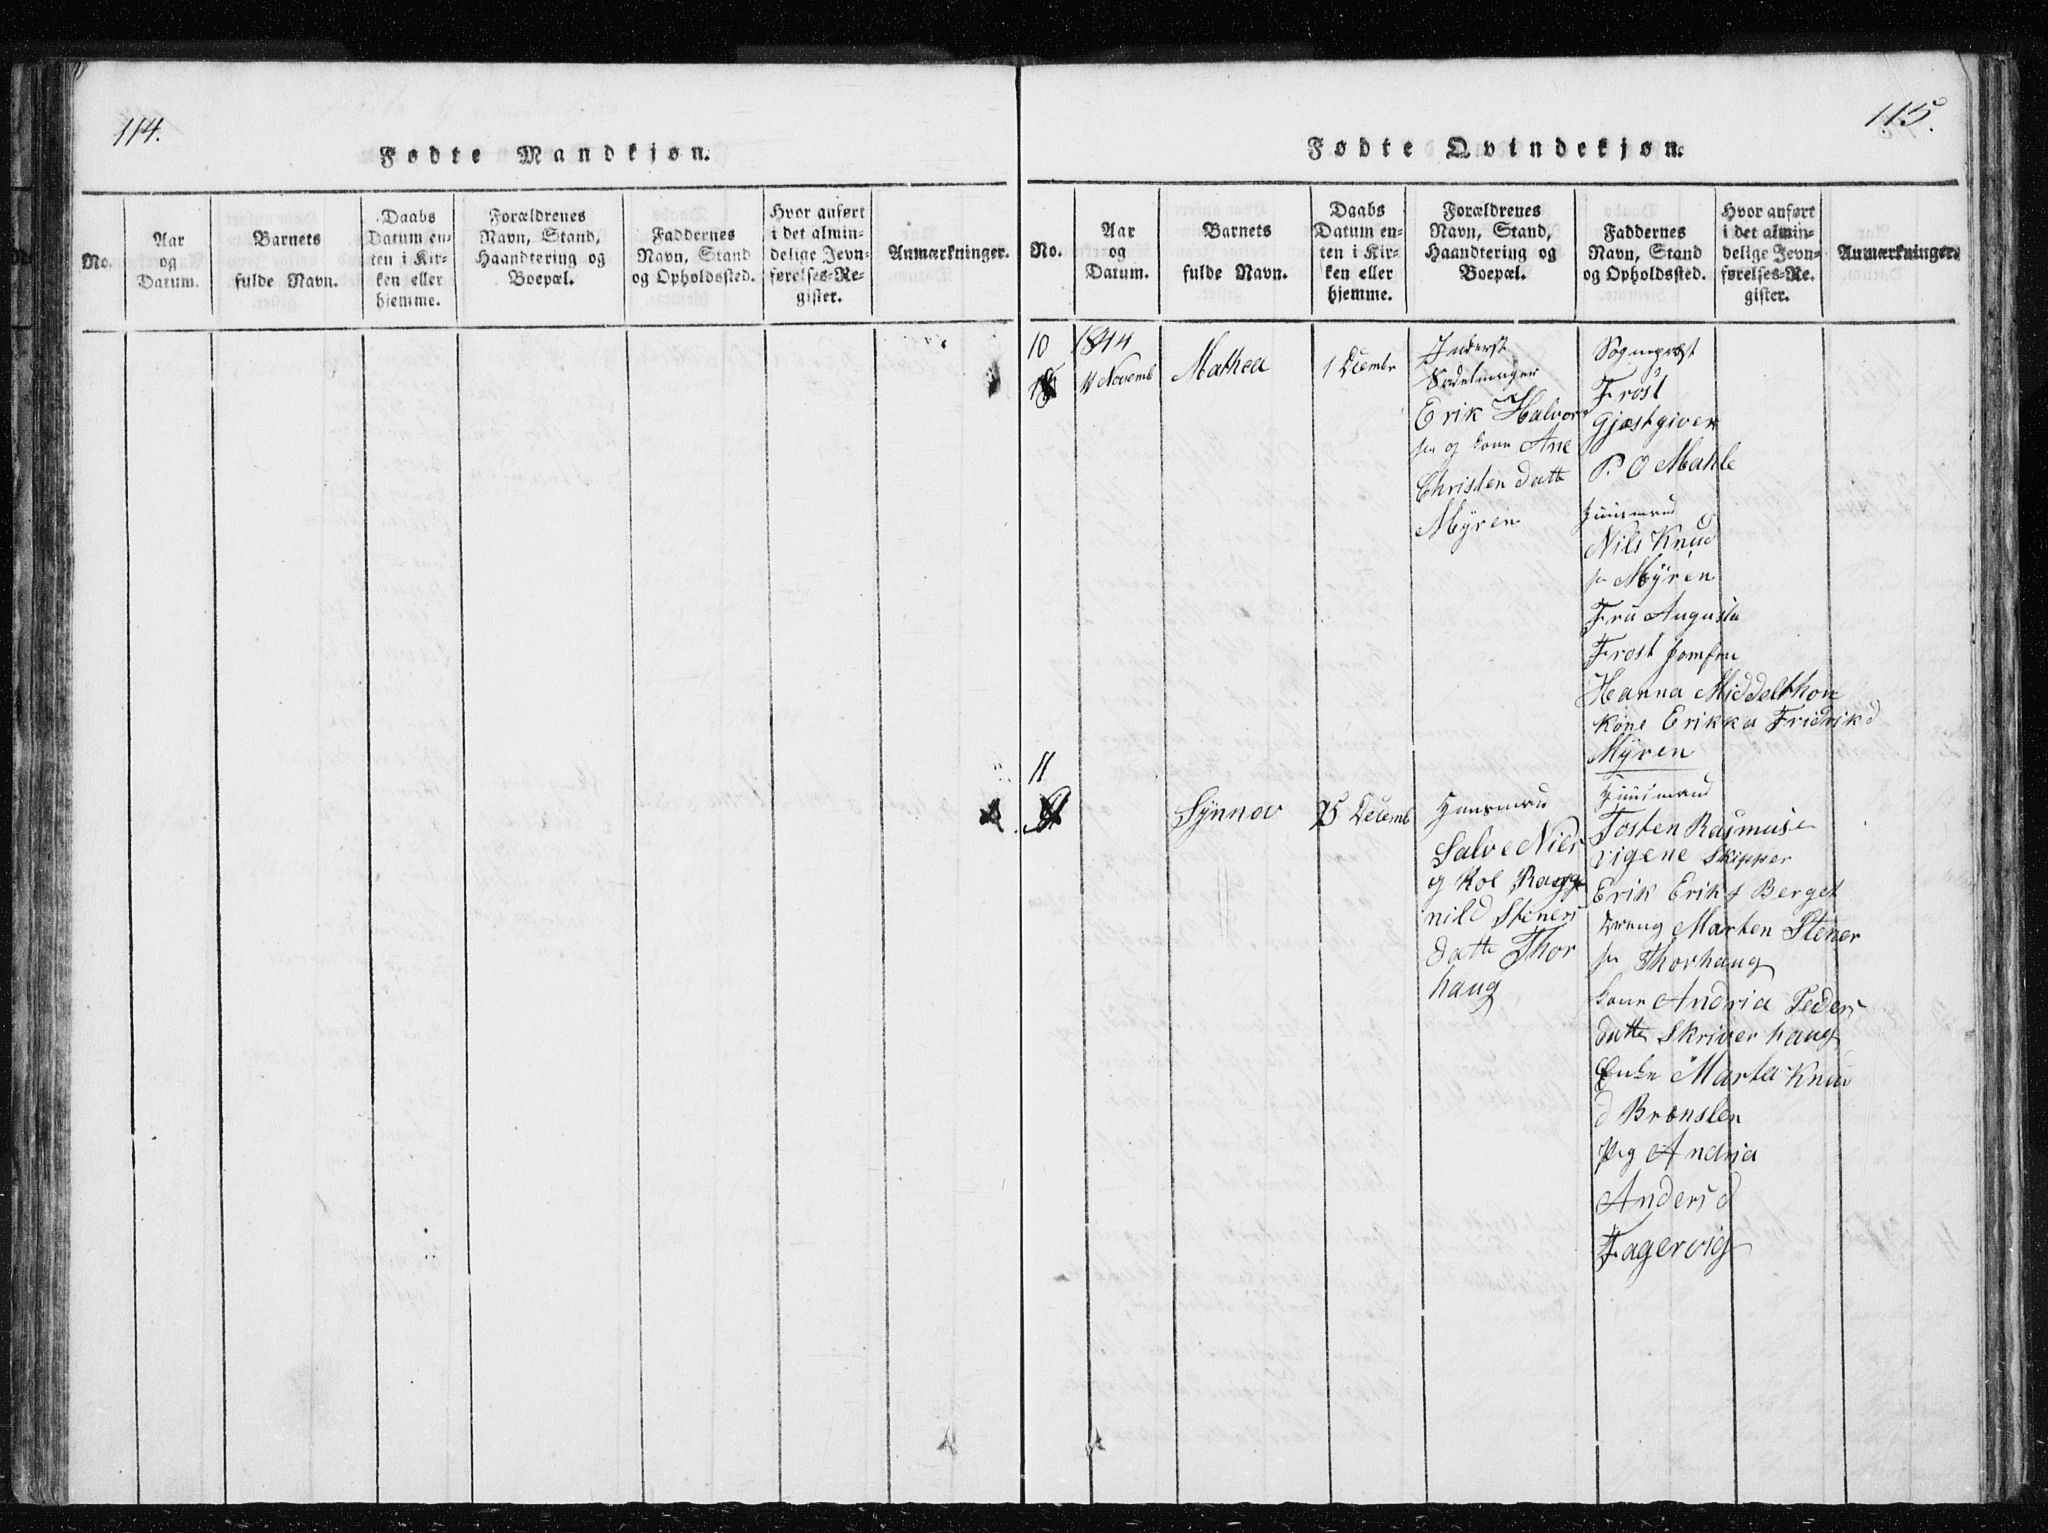 114.
Fødte Mandkjøn.
No.
Aar
og
Datum.
Barnets
fulde Navn.
Daabs
Datum en-
ten i Kir-
ken eller
hjemme.
Forældrenes
Navn, Stand,
Haandtering og
Boepæl.
Faddernes
Navn, Stand
og Opholdssted.
Hvor anført
i det almin-
delige Jevn-
førelses-Re-
gister.
Anmærkninger.
115.
Fødte Qvindekjøn.
No.
Aar
og
Datum.
Barnets
fulde Navn.
Daabs
Datum en-
ten i Kir-
ken eller
hjemme.
Forældrenes
Navn, Stand,
Haandtering og
Boepæl.
Faddernes
Navn, Stand
og Opholdssted.
Hvor anført
i det almin-
delige Jevn-
førelses-Re-
gister.
Anmærkninger.
10
1844
11 Novemb
Mathea
1 Decembr
Inderst
Sadelmager
Erik Halvor
sen og kone Ane
Christen datte
Myren
Sognepræst
Frost
Gjæstgiver
P. O Mahle
Huusmand
Nils Knud
sn Myren
Fru Augusta
Frost jomfru
Hanna Middelthon
kone Erikka Fridrikd
Myren
11
Synnov
25 Decemb
Huusman
Salve Niels
og Kol Ragge
nild Steners
datte Thor
haug
Huusmand
Tosten Rasmuse
vigene Skipper
Erik Eriks Berget
Dreng Marten Stener
sn Thorhaug
kone Andria Peders
datte Skriver haug
Enke Marta Knu
d Brenslen
Pig Andria
Anders d
Fagervig